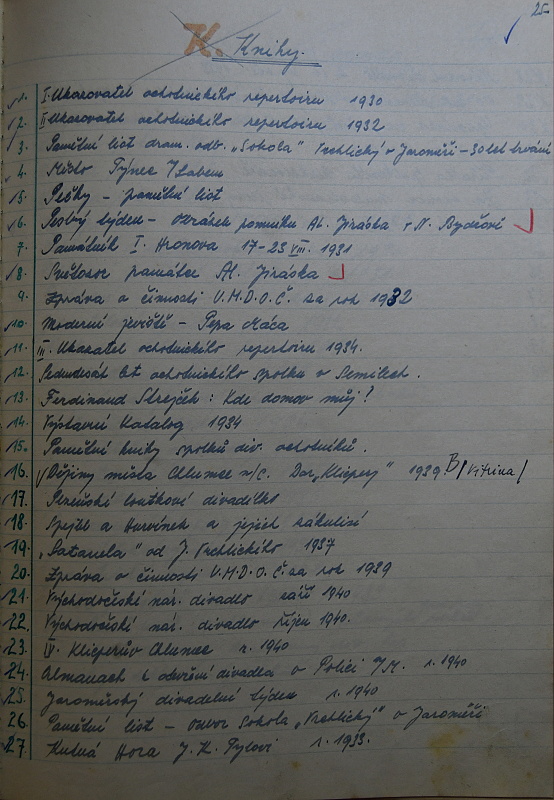 25.
K. Knihy.
1. I. Ukazovatel ochotnického repertoiru 1930
2. II Ukazovatel ochotnického repertoiru 1932
3. Pamětní list dram. odb. „Sokola" Vrchlický v Jaroměři – 30 let trvání
4. Město Týnec /Labem
5. Pešky – pamětní list
6. Pestrý týden – Obrázek pomníku Al. Jiráska v N. Bydžově
7. Památník I. Hronova 17–23 VIII. 1931
8. Světozor památce Al. Jiráska
9. Zpráva o činnosti Ú.M.D.O.Č. za rok 1932
10. Moderní jeviště – Pepa Máca
11. III. Ukazatel ochotnického repertoiru 1934.
12. Sedmdesát let ochotnického spolku v Semilech.
13. Ferdinand Strejček: Kde domov můj?
14. Výstavní Katalog 1934
15. Pamětní knihy spolků div. ochotníků.
16. Dějiny města Chlumce n/C. Dar „Klicpery" 1939 B/Vitrina/
17. Plzeňské loutkové divadélko
18. Spejbl a Hurvínek a jejich zákulisí
19. „Satanela" od J. Vrchlického 1937
20. Zpráva o činnosti Ú.M.D.O.Č. za rok 1939
21. Východočeské nár. divadlo září 1940
22. Východočeské nár. divadlo říjen 1940.
23. IV. Klicperův Chlumec r. 1940
24. Almanach k otevření divadla v Polici n/M. r. 1940
25. Jaroměřský divadelní týden r. 1940
26. Pamětní list – Odbor Sokola „Vrchlický" v Jaroměři
27. Kutná Hora J. K. Tylovi r. 1933.